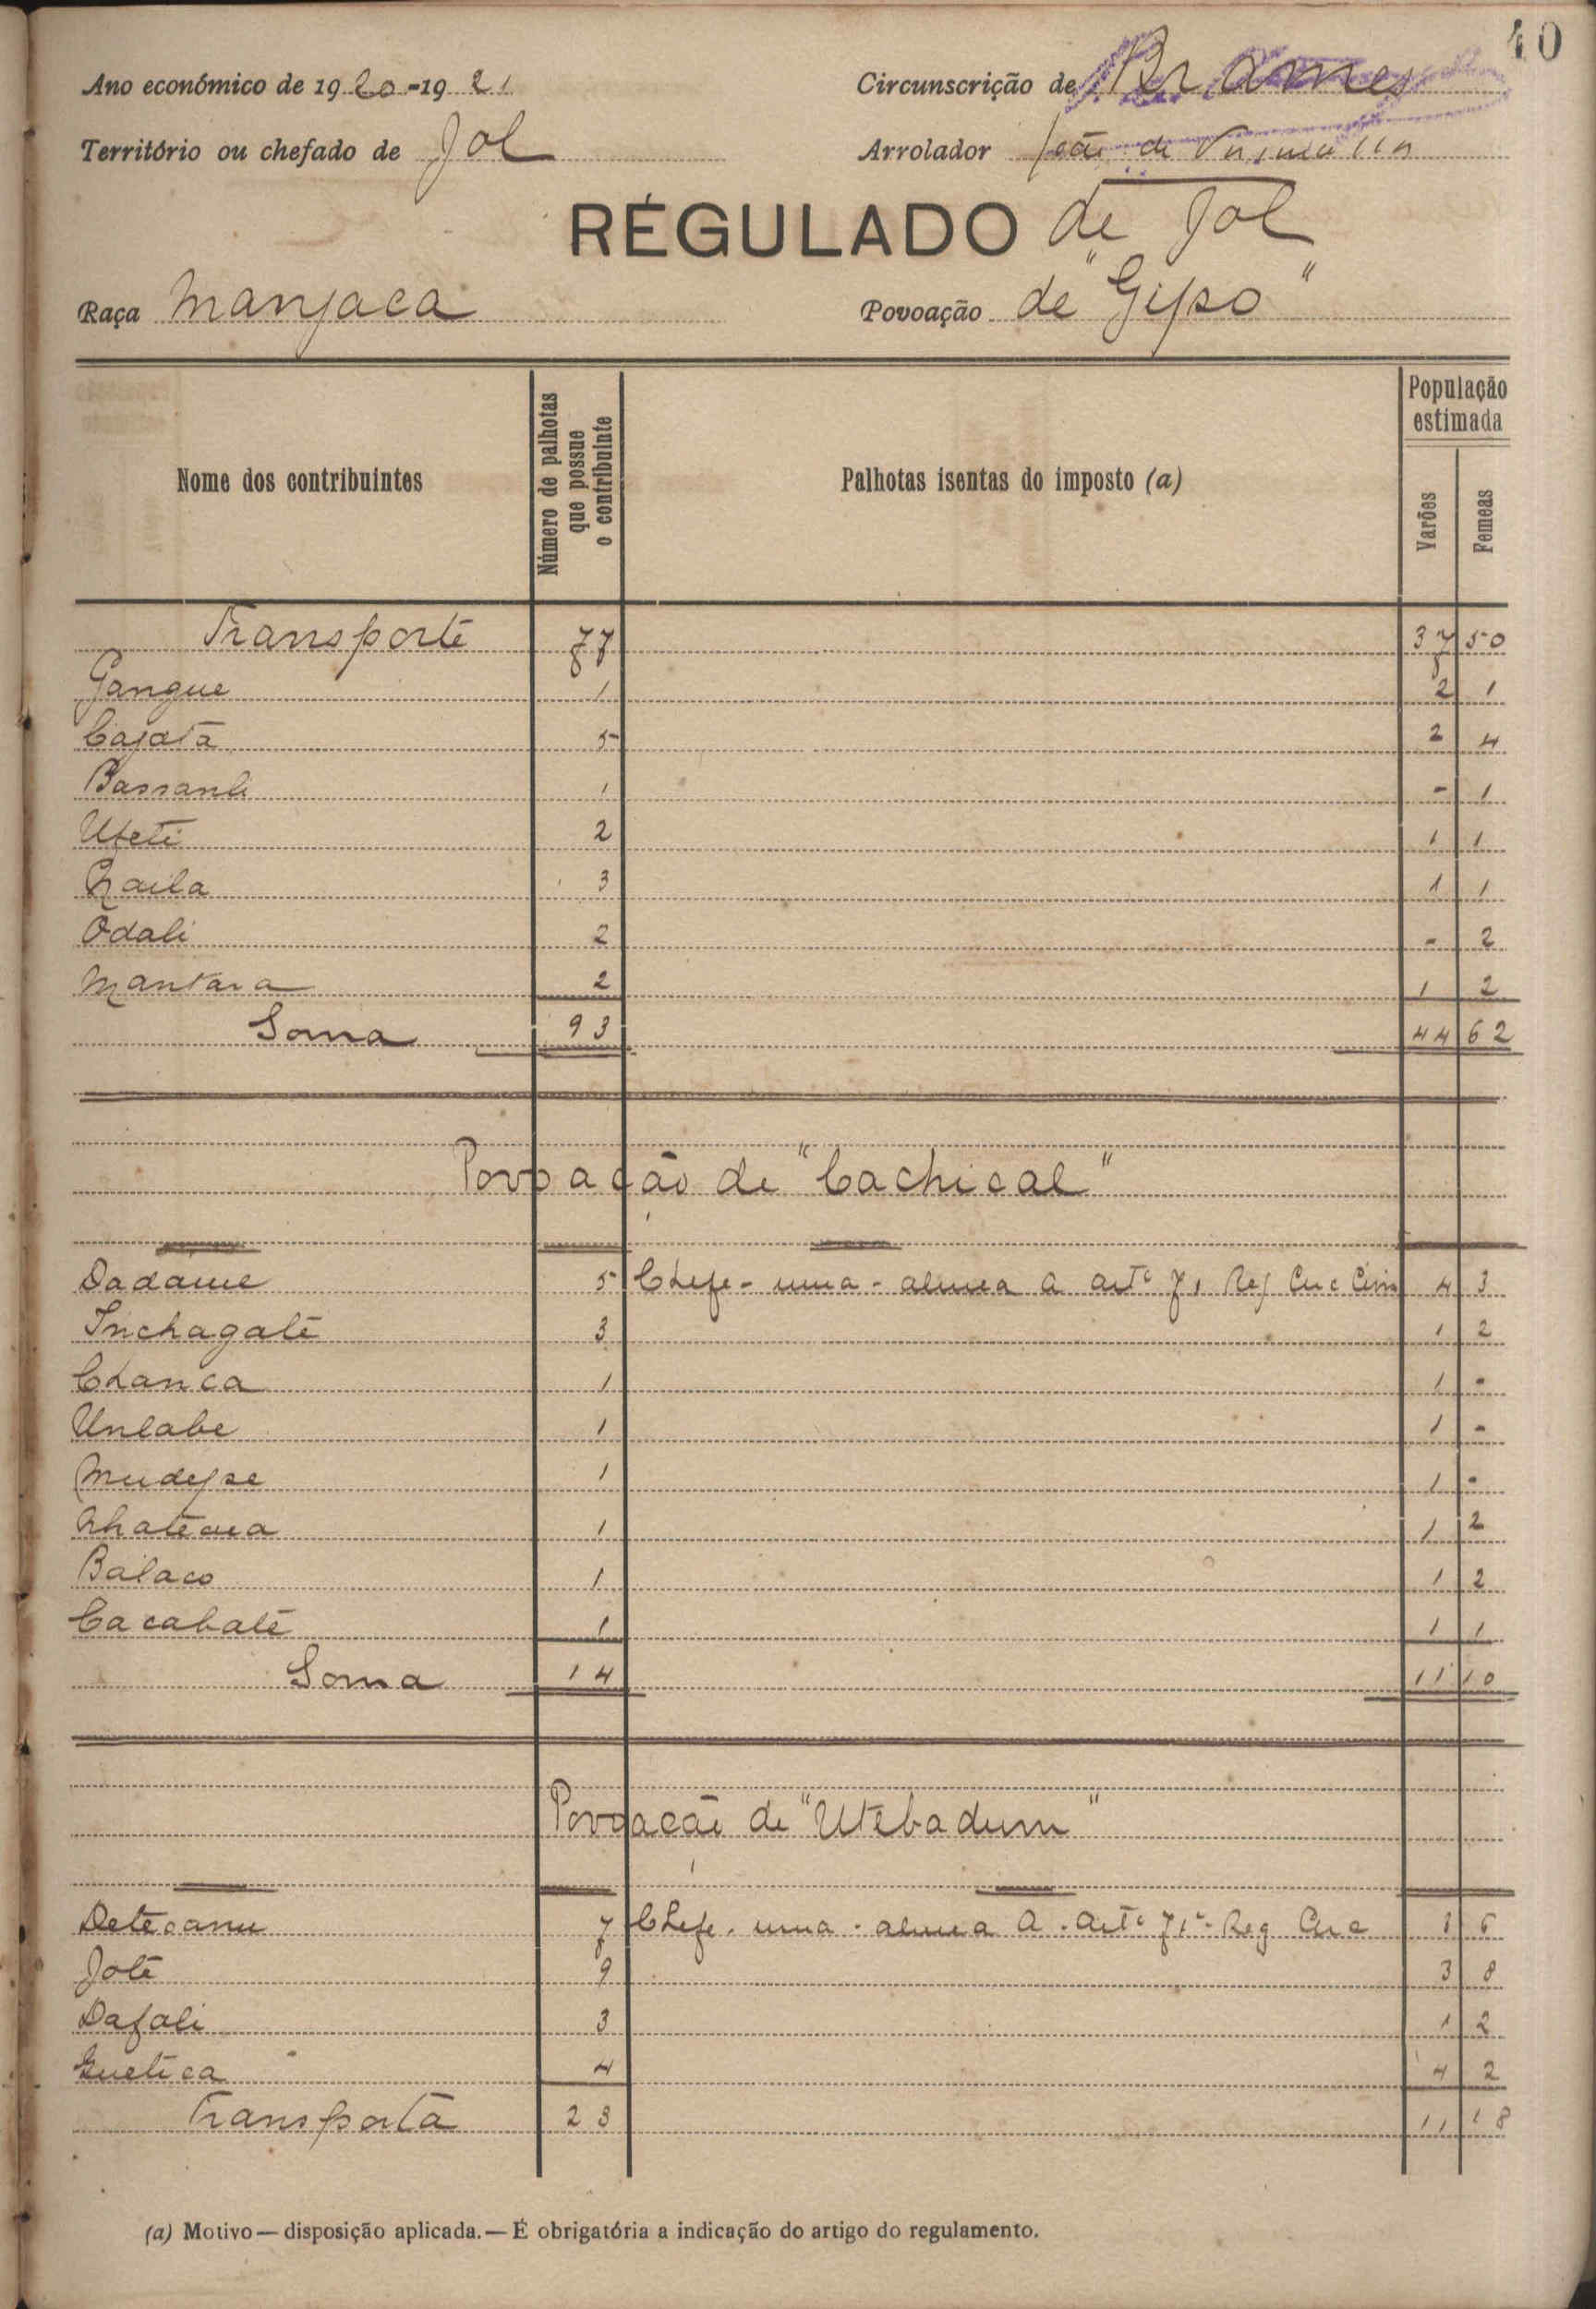 40
Ano económico de 1920-1921 Circunscrição de Brames
Território ou chefado de Jol Arrolador João de
REGULADO de Jol
Raça Manjaca Povoação de "Gipso"
Nome dos contribuintes Número de palhotas que possue o contribuinte Palhotas isentas do imposto (a) População estimada
Varões Femeas
Transporte 77 37 50
Gangue 1 2 1
Cajatá 5 2 4
Bassanli 1 - 1
Uteti 2 1 1
Naila 3 1 1
Odali 2 - 2
Mantara 2 1 2
Soma 93 44 62
Povoação de "Cachical"
Dadáme 5 Chefe - uma - alinea a artº 71 Reg Circ Civis 4 3
Inchagaté 3 1 2
Chanca 1 1 -
Unlabe 1 1 -
Mudepse 1 1 -
1 1 2
Balaco 1 1 2
Cacabaté 1 1 1
Soma 14 11 10
Povoação de "Utebadum"
Detecanu 7 Chefe - uma - alinea a - artº 71º - Reg Circ 3 6
Joté 9 3 8
Dafali 3 1 2
Guetica 4 4 2
Transporta 23 11 18
(a) Motivo — disposição aplicada. — É obrigatória a indicação do artigo do regulamento.